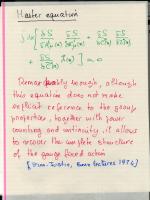 Master equation
∫dx [ δS/δA^a_μ(x) δS/δK^a_μ(x) + δS/δC̄(x) δS/δL(x)
+ δS/δC̄(x) λ(x) ] = 0
Remarkably enough, although
this equation does not make
explicit reference to the gauge
properties, together with power
counting and continuity, it allows
to recover the complete structure
of the gauge fixed action
[Zinn-Justin, Bonn lectures 1974]